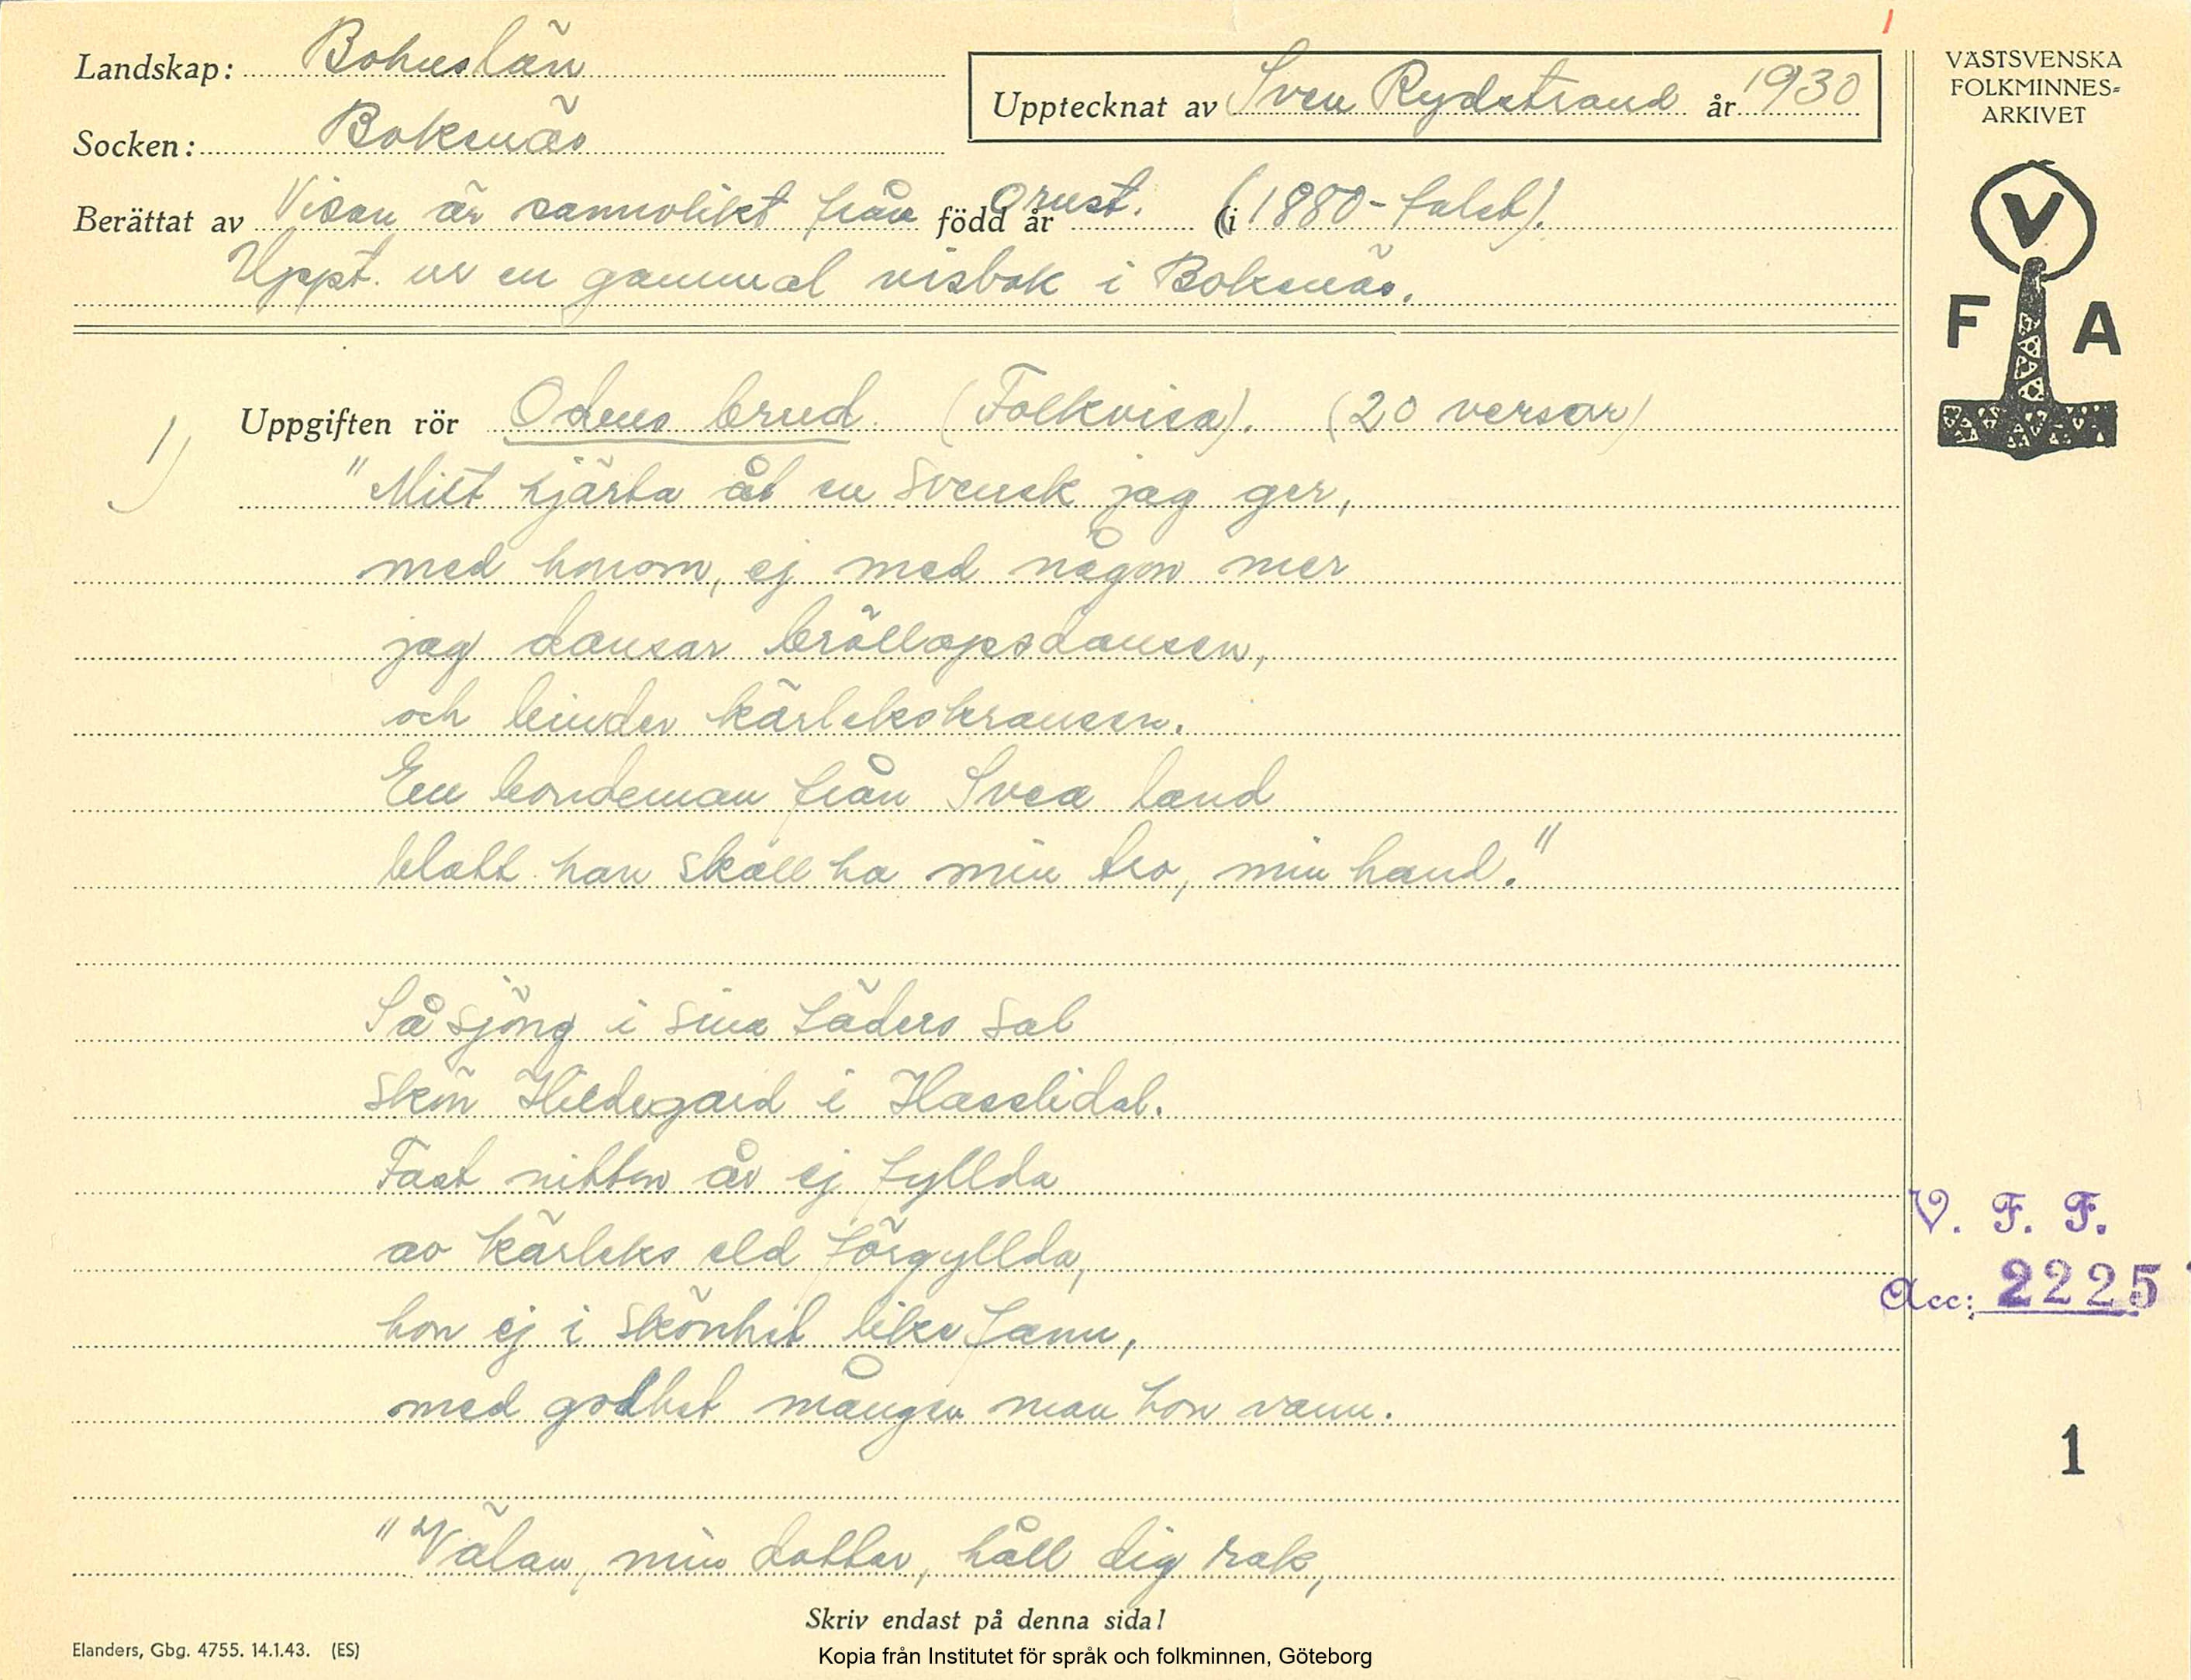 Landskap: Bohuslän
Socken: Bokenäs
Upptecknat av Sven Rydstrand år 1930
Berättat av Visan är sannolikt från född år Orust. (i 1880-talet).
Uppt. ur en gammal visbok i Bokenäs.
1) Uppgiften rör Odens brud (Folkvisa). (20 verser)
"Mitt hjärta åt en svensk jag ger,
med honom, ej med någon mer
jag dansar bröllopsdansen,
och binder kärlekskransen.
En bondeman från Svea land
blott han skall ha min tro, min hand."
Så sjöng i sina fäders sal
skön Hildegard i Hasslidal.
Fast nitton år ej fyllda
av kärleks eld förgyllda,
hon ej i skönhet like fann,
med godhet mången man hon vann.
"Välan, min dotter, håll dig rak,
Skriv endast på denna sida!
Elanders, Gbg. 4755. 14.1.43. (ES)
Kopia från Institutet för språk och folkminnen, Göteborg
1
VÄSTSVENSKA
FOLKMINNES-
ARKIVET
V
F A
V. F. F.
Acc: 2225
1